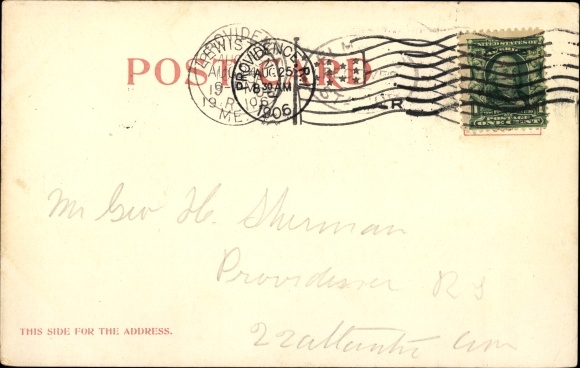 POST CARD
LEWIST
AUG
1906
ME
PROVIDENCE, R.
AUG 25
8-9AM
1906
R
UNITED STATES OF AMERICA
POSTAGE
ONE CENT
Mr Geo H. Sherman
Providence R I
22 Atlantic Ave
THIS SIDE FOR THE ADDRESS.